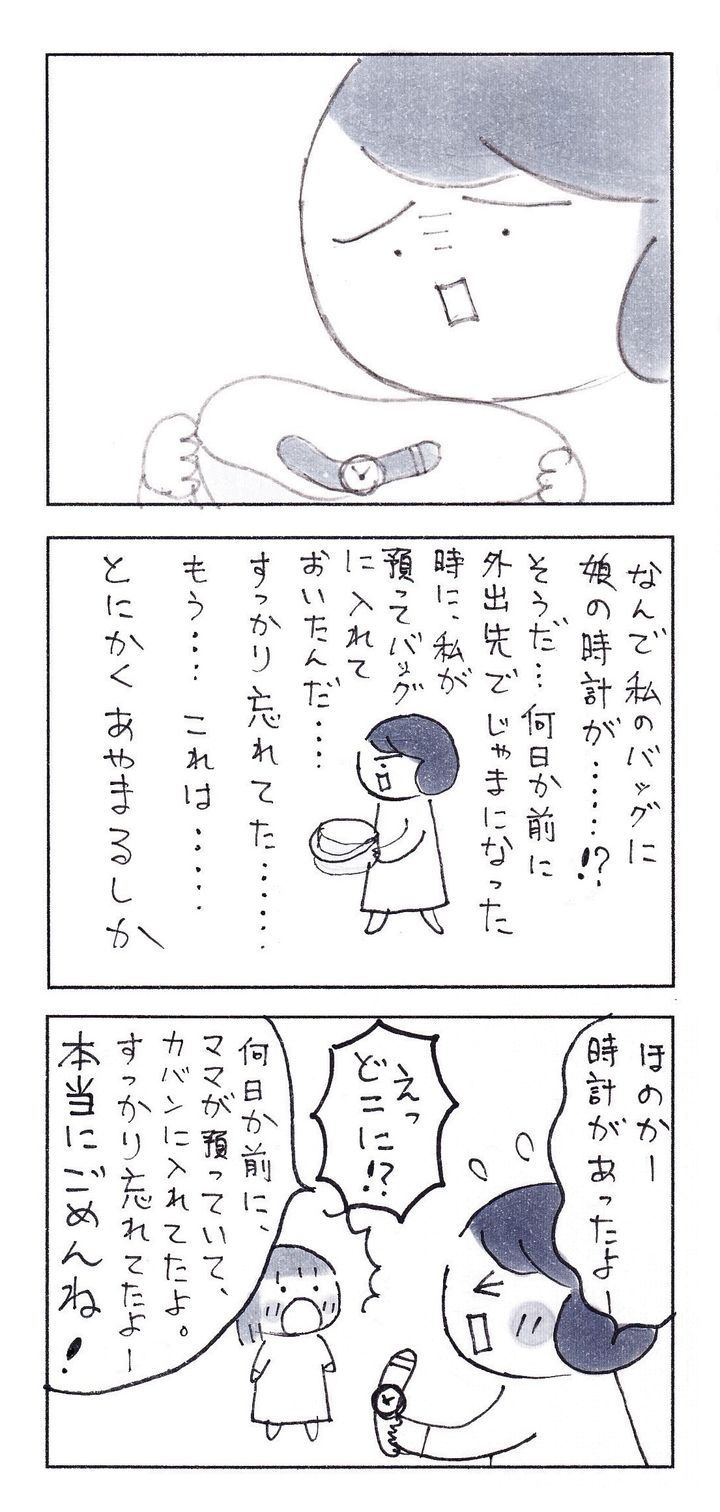 なんで私のバッグに
娘の時計が……!?
そうだ…何日か前に
外出先でじゃまになった
時に、私が
預ってバッグ
に入れて
おいたんだ‥‥
すっかり忘れてた……
もう‥‥これは‥‥‥
とにかくあやまるしか
ほのかー
時計があったよー
えっ
どこに!?
何日か前に、
ママが預っていて、
カバンに入れてたよ。
すっかり忘れてたよー
本当にごめんね!